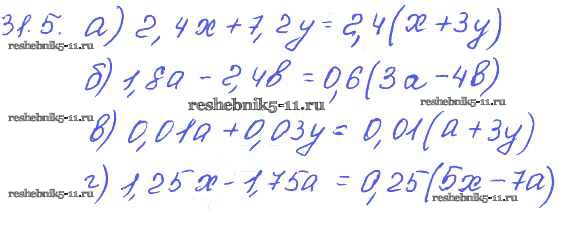 31.5. а) 2,4x + 7,2y = 2,4(x + 3y)
reshebnik5-11.ru
б) 1,8a - 2,4b = 0,6(3a - 4b)
reshebnik5-11.ru reshebnik5-11.ru
reshebnik5-11.ru
в) 0,01a + 0,03y = 0,01(a + 3y)
г) 1,25x - 1,75a = 0,25(5x - 7a)
reshebnik5-11.ru reshebnik5-11.ru